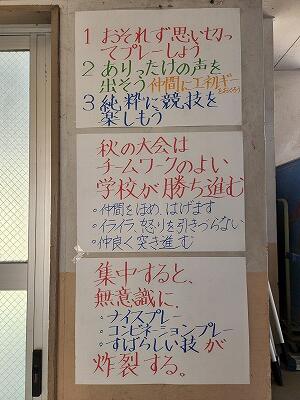 1 おそれず思い切っ
てプレーしよう
2 ありったけの声を
出そう 仲間にエネルギー
をおくろう
3 純粋に競技を
楽しもう
秋の大会は
チームワークのよい
学校が勝ち進む
・仲間をほめ、はげます
・イライラ、怒りを引きづらない
・仲良く突き進む
集中すると、
無意識に、
・ナイスプレー
・コンビネーションプレー
・すばらしい技が
炸裂する。